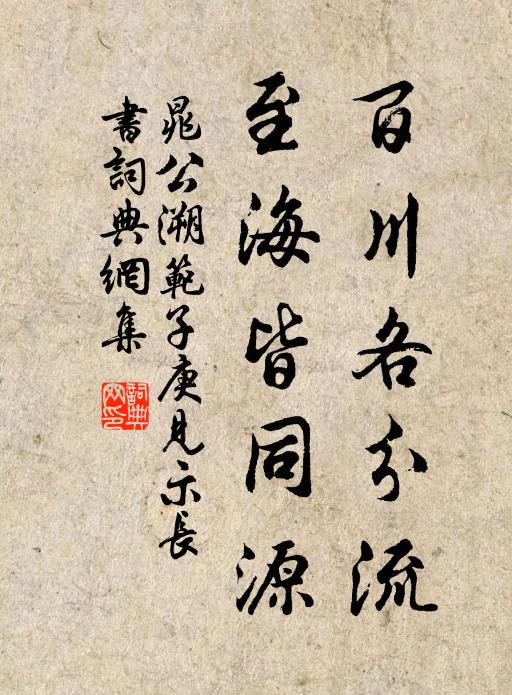 百川各分流
至海皆同源
晁公溯範子庚見示長
書詞典網集
詞典網印